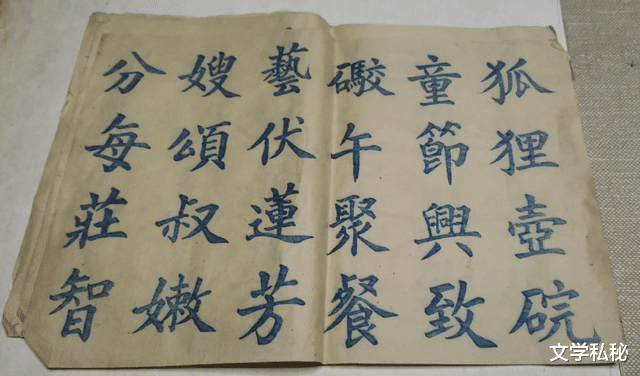 狐狸壺
童節興致
午聚餐
藝伏蓮芳
嫂頌叔嫩
分每莊智
文学私秘